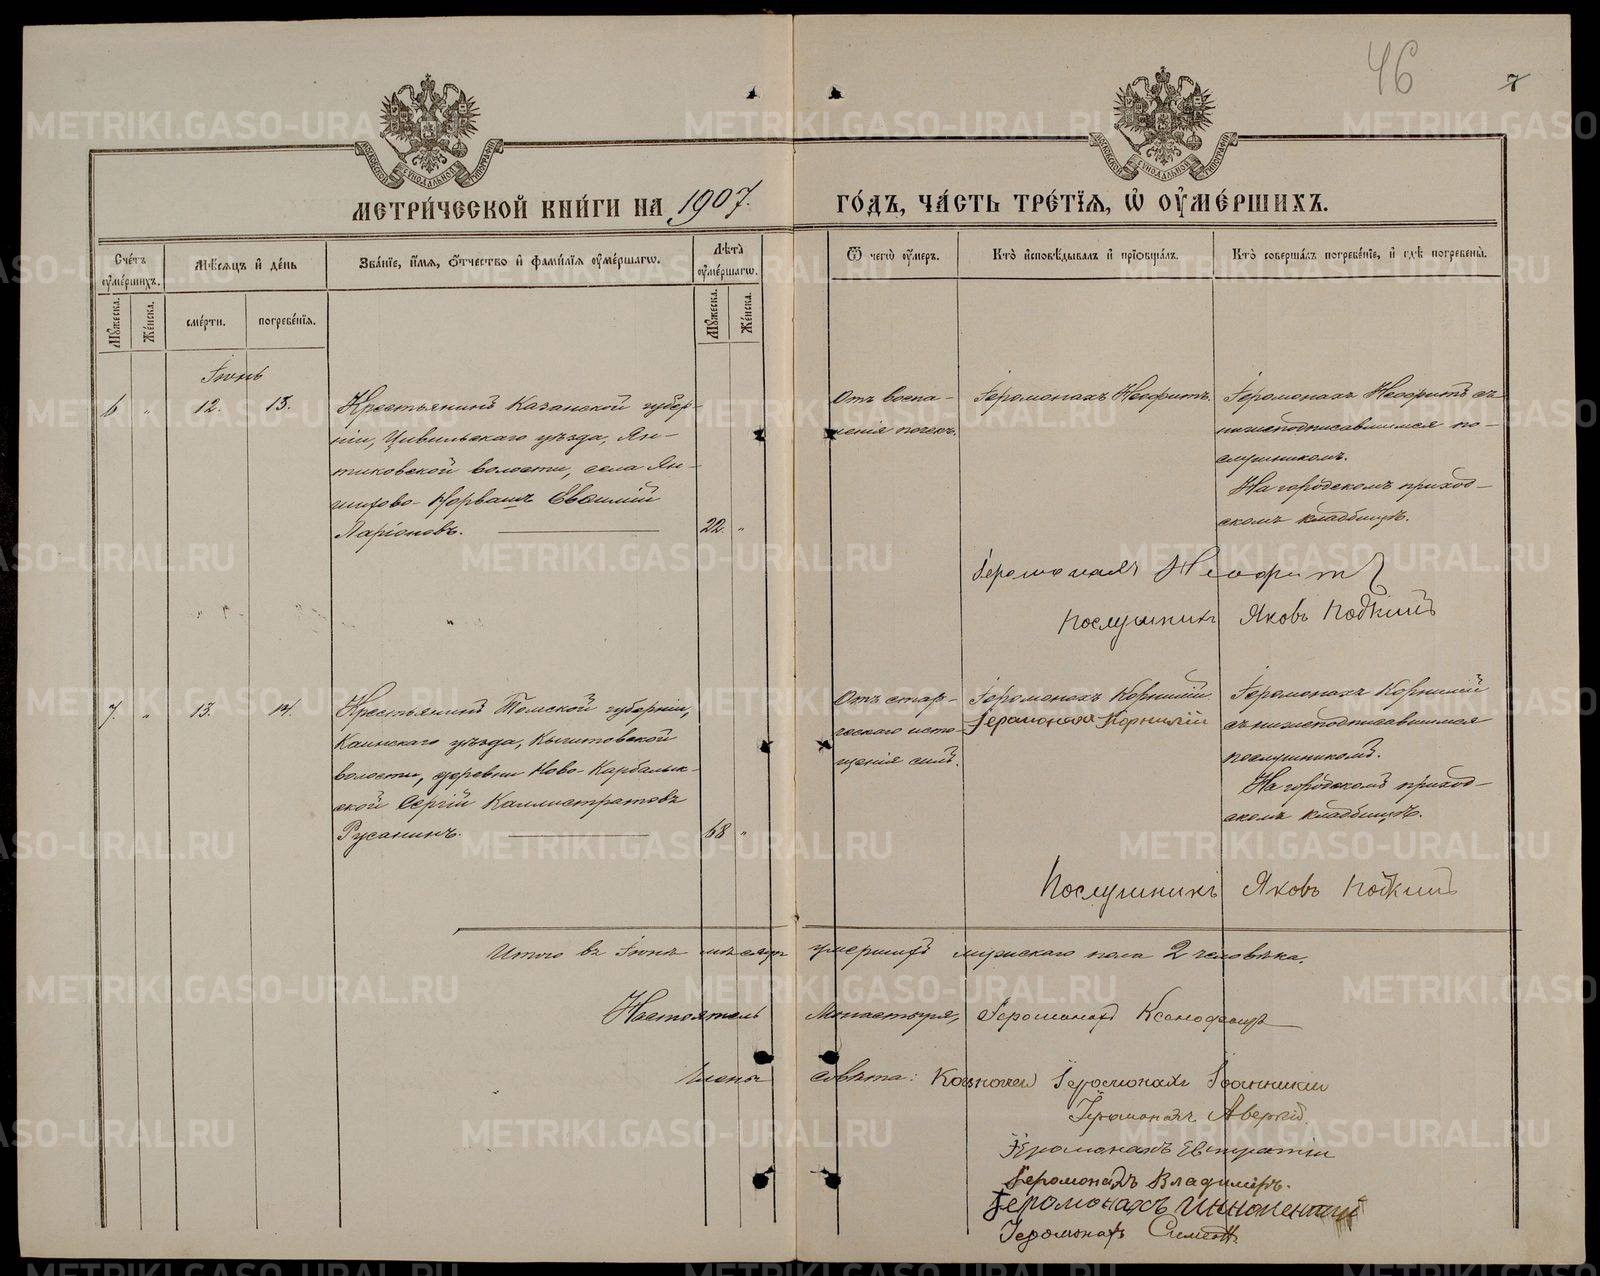 46
7
МОСКОВСКОЙ СѴНОДАЛЬНОЙ ТИПОГРАФІИ
МОСКОВСКОЙ СѴНОДАЛЬНОЙ ТИПОГРАФІИ
МЕТРИ́ЧЕСКОЙ КНИ́ГИ НА 1907. ГО́ДЪ, ЧА́СТЬ ТРЕ́ТІЯ, Ѡ ОУМЕ́РШИХЪ.
Сче́тъ оумéршихъ.
Мѣ́сяцъ и де́нь
Зва́нїе, и́мя, о́тчество и фами́лїя оуме́ршагѡ.
Лѣта̀ оуме́ршагѡ.
Ѿ чегѡ̀ оу́меръ.
Кто̀ и҆сповѣ́дывалъ и҆ прїѡбща́лъ.
Кто̀ соверша́лъ погребе́нїе, и҆ гдѣ̀ погребены̀.
Мꙋжеска.
Же́нска.
сме́рти.
погребе́нїя.
Мꙋжеска.
Же́нска.
Іюнь
6 " 12. 13.
Крестьянинъ Казанской губер-
ніи, Цивильскаго уѣзда, Ян-
тиковской волости, села Ян-
шихово-Норвашъ Евѳимій
Ларіоновъ. 22. "
Отъ воспа-
ленія почекъ.
Іеромонахъ Неофитъ.
Іеромонахъ Неофитъ съ
нижеподписавшимся по-
слушникомъ.
На городскомъ приход-
скомъ кладбищѣ.
Іеромонахъ Неофитъ
Послушникъ Яковъ
7. " 13. 14.
Крестьянинъ Томской губерніи,
Каинскаго уѣзда, Кыштовской
волости, деревни Ново-Карбалык-
ской Сергій Каллистратовъ
Русанинъ. 68 "
Отъ стар-
ческаго исто-
щенія силъ.
Іеромонахъ Корнилій
Іеромонахъ Корнилій
Іеромонахъ Корнилій
съ нижеподписавшимся
послушникомъ.
На городскомъ приход-
скомъ кладбищѣ.
Послушникъ Яковъ
Итого въ Іюнѣ мѣсяцѣ умершихъ мужскаго пола 2 человѣка.
Настоятель Монастыря, Іеромонахъ Ксенофонтъ
Члены совѣта: Казначей Іеромонахъ Іоанникій
Іеромонахъ Аверкій
Іеромонахъ Евстратій
Іеромонахъ Владиміръ.
Іеромонахъ Иннокентий
Іеромонахъ Симеонъ
METRIKI.GASO-URAL.RU